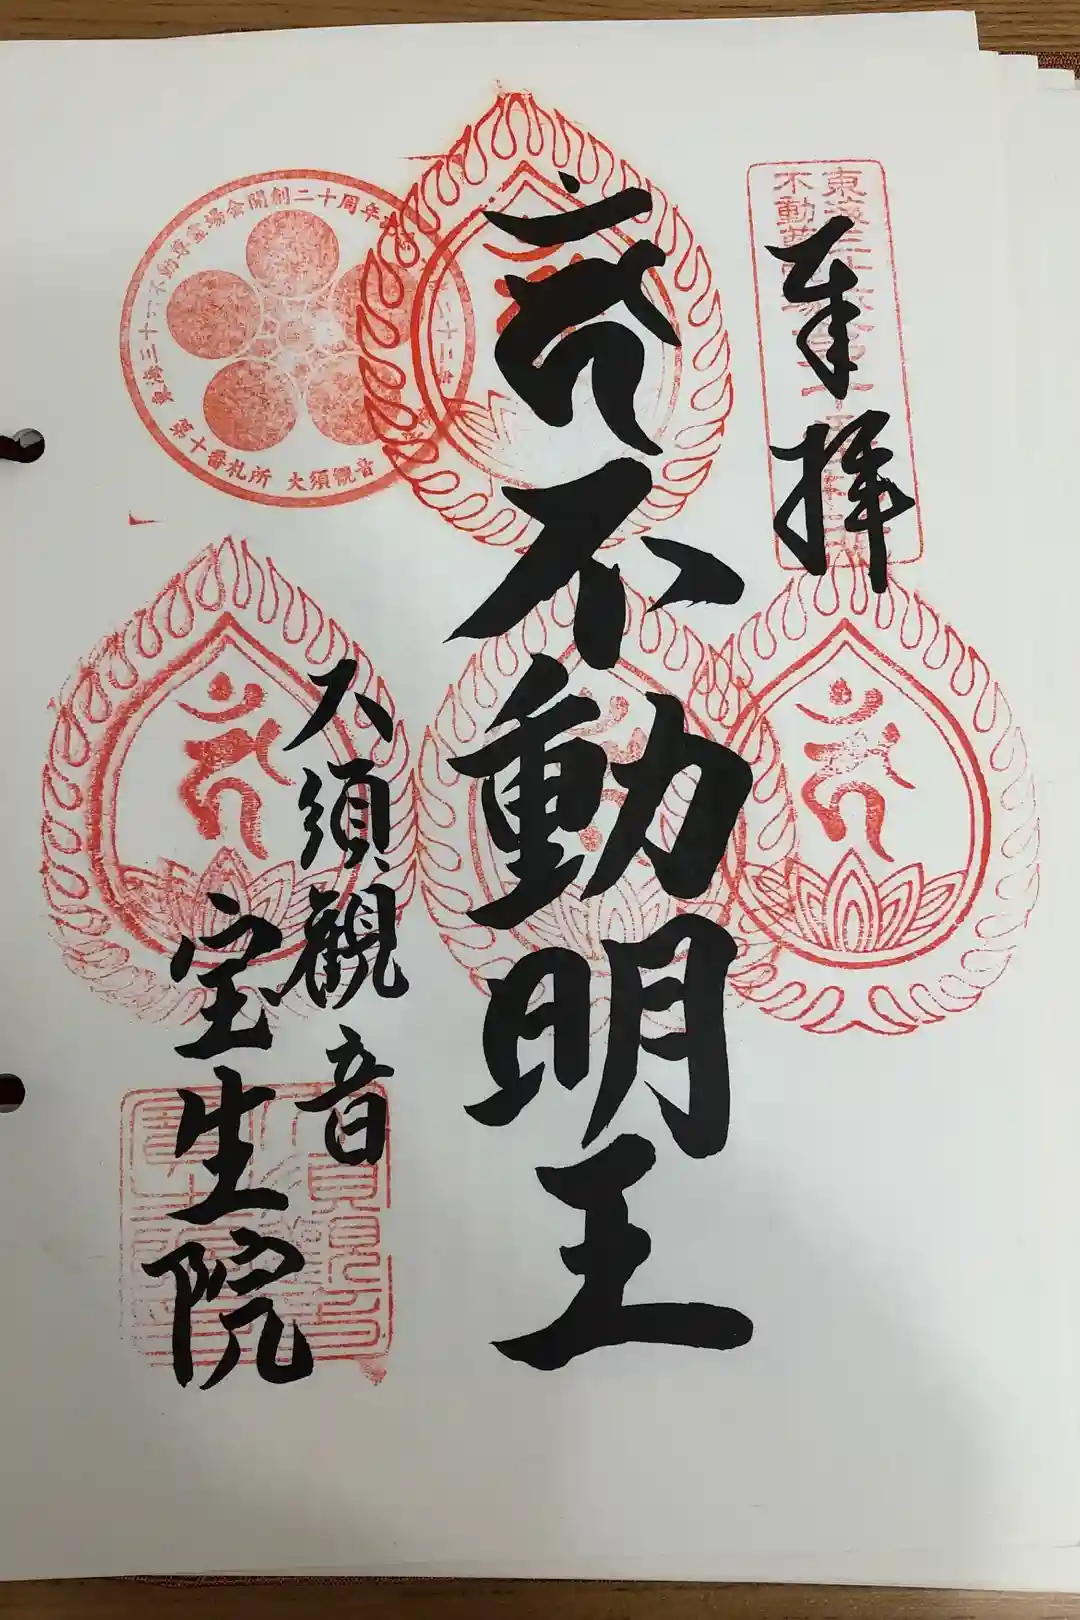 奉拝
不動明王
大須観音
宝生院
東海三十六不動尊霊場会開創二十周年
第十番札所 大須観音